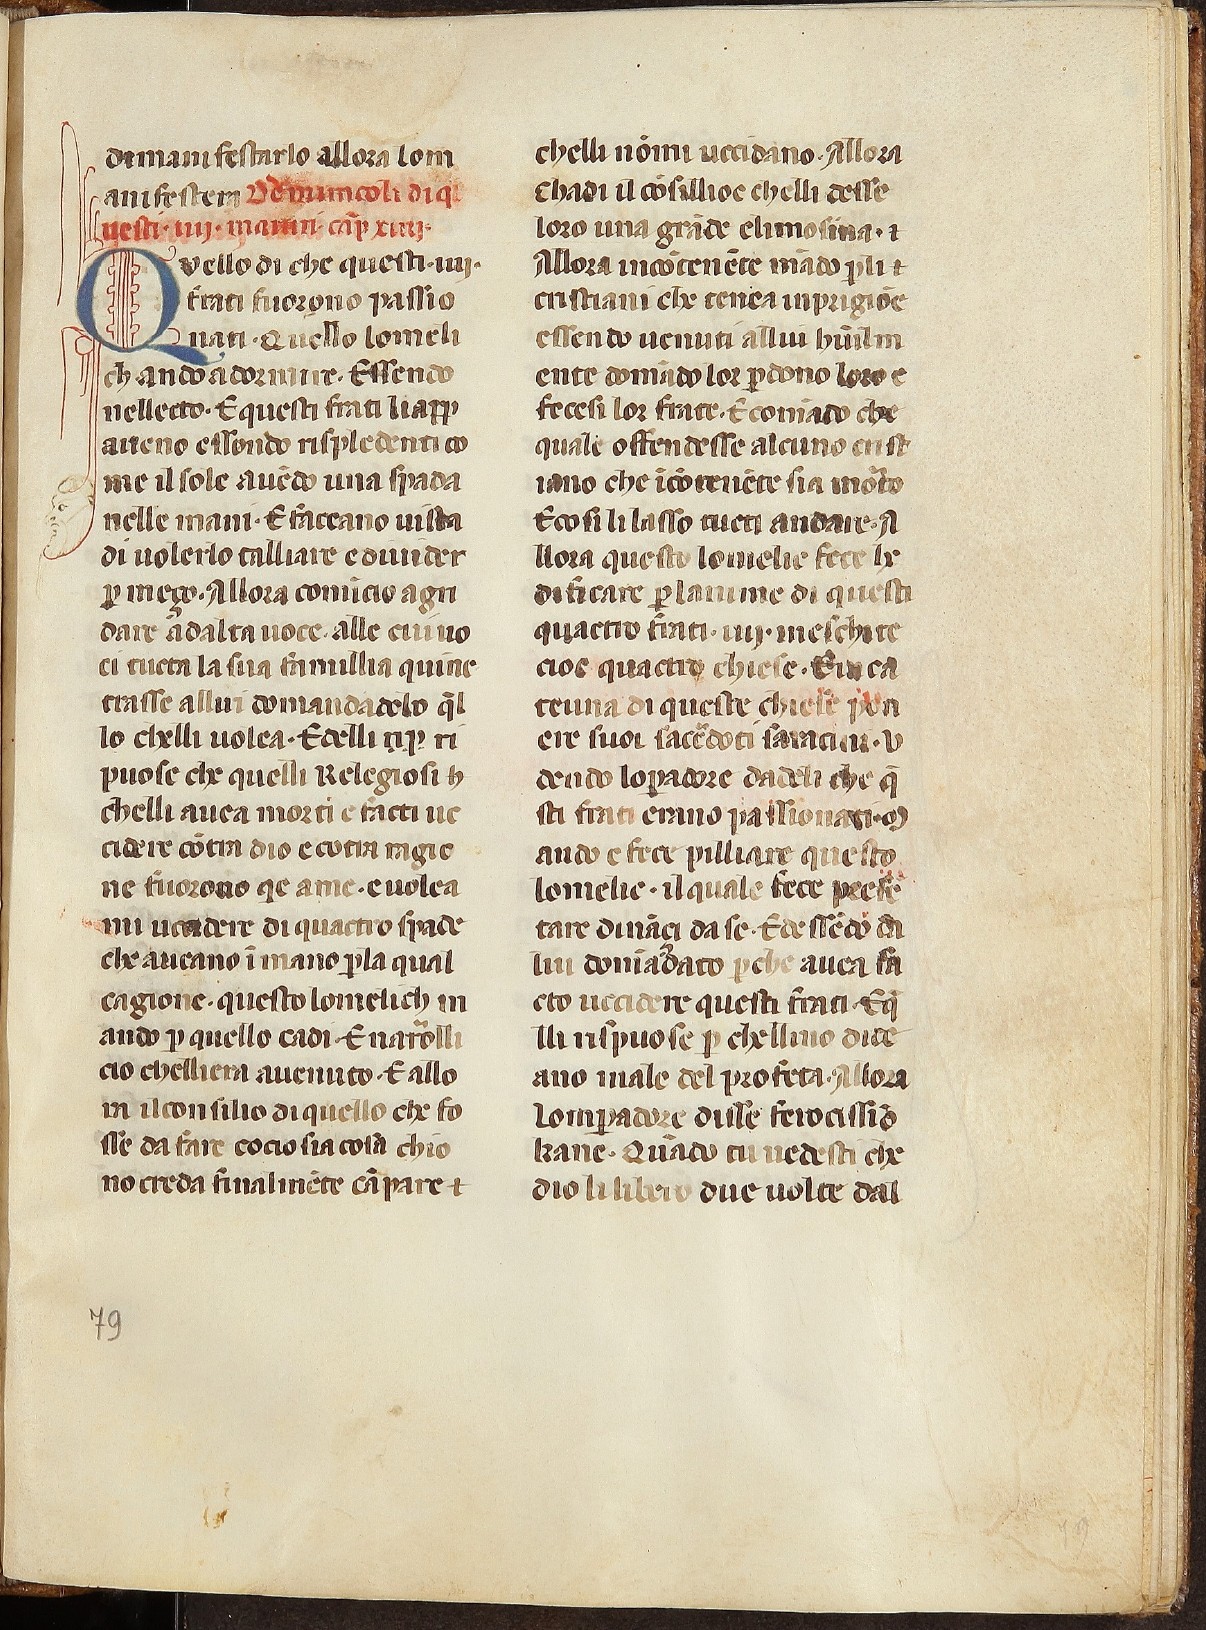 dimanifestarlo allora lom
anifestera
uesti · iiij · martiri · cap̃ xiiij ·
Quello di che questi · iiij ·
frati fuorono passio
nati · Quello lomeli
ch andò a dormire · Essendo
nellecto · E questi frati li app
aueno essendo risplēdenti co
me il sole auēdo una spada
nelle mani · E faceano uista
di uolerlo talliare e diuider
p̱ meço · Allora comīcio a gri
dare ad alta uoce · alle cui uo
ci tucta la sua famillia quine
trasse allui domandadolo q̄l
lo chelli uolea · Edelli ri
puose che quelli Relegiosi
chelli auea morti e facti uc
cidere cōtra dio e cōtra ragio
ne fuorono qe ame · e uolea
mi uccidere di quactro spade
che aueano ī mano p̱ la qual
cagione · questo lomelich m
ando p̱ quello cadi · E narolli
cio chelliera auenuto · E allo
ra il consilio di quello che fo
sse da fare cōcio sia cosa chio
no creda finalmēte cāpare ⁊
chelli nōmi uccidano · Allora
Chadi il cōsillioe chelli desse
loro una grāde elimosina · ⁊
Allora incōtenēte mādo p̱ li ⁊
cristiani che tenea inprigiōe
essendo uenuti allui humilm
ente domādo lor p̱dono loro e
fecesi lor frate · E comādo che
quale offendesse alcuno crist
iano che īcōtenēte sia morto
E cosi li lasso tucti andare · A
llora questo lomelic fece he
dificare p̱ lanime di questi
quactro frati · iiij · meschite
cioe quactro chiese · E in ca
teuna di queste chiese
ere suoi sacerdoti saracini · V
dendo lop̱adore dadeli che q̄
sti frati erano passionati · M
ando e fece pilliare questo
lomelic · il quale fece presē
tare dināci da se · Ed essēdo da
lui domādato p̱che auea fa
cto uccidere questi frati · E q̄
lli rispuose p̱ chellino dice
ano male del profeta · Allora
Lomp̱adore disse ferocissiō
kane · Quādo tu uedesti che
dio li libero due uolte dal
79
79